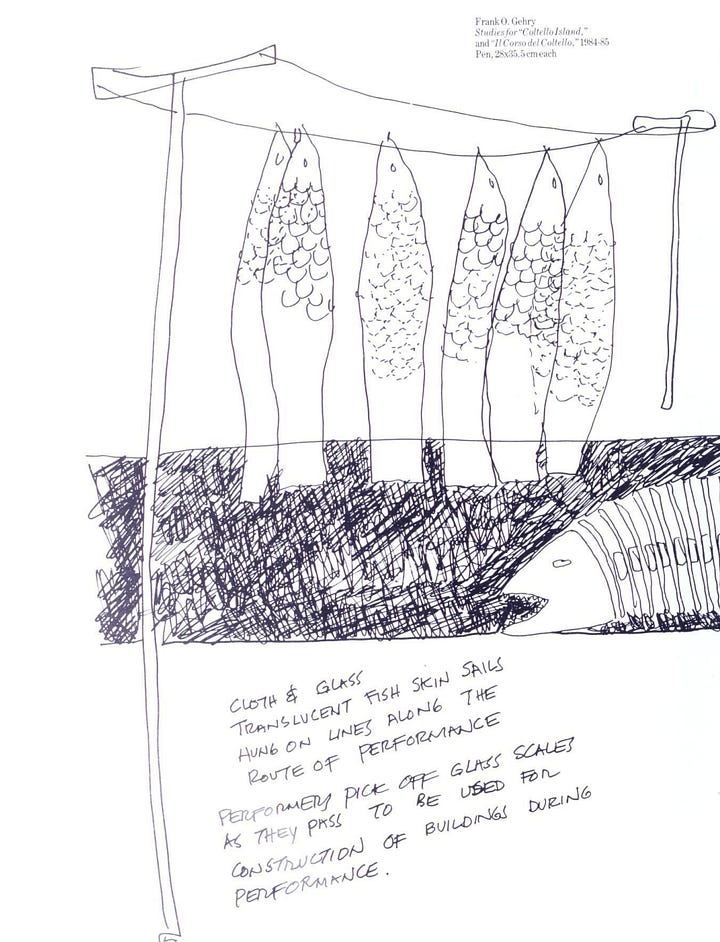 Frank O. Gehry
Studies for "Coltello Island,"
and "Il Corso del Coltello," 1984-85
Pen, 28x35,5 cm each
CLOTH & GLASS
TRANSLUCENT FISH SKIN SAILS
HUNG ON LINES ALONG THE
ROUTE OF PERFORMANCE
PERFORMERS PICK OFF GLASS SCALES
AS THEY PASS TO BE USED FOR
CONSTRUCTION OF BUILDINGS DURING
PERFORMANCE.